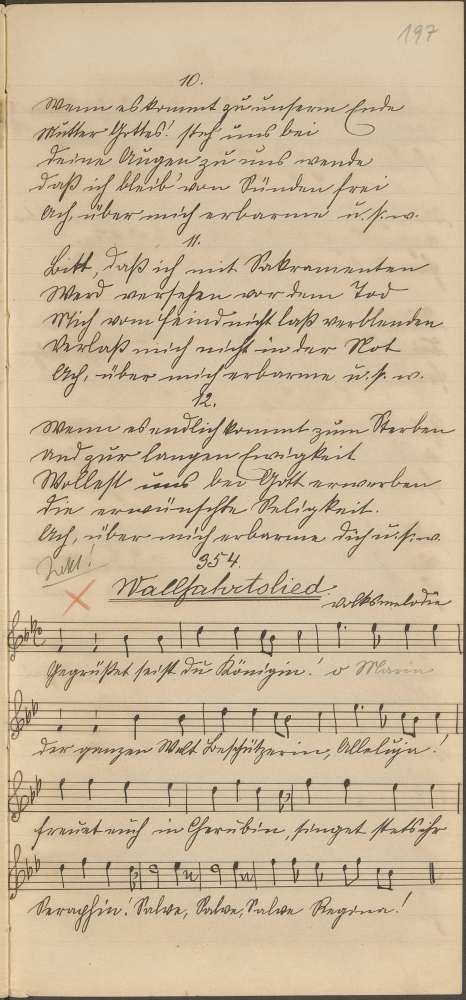 197
10.
Wenn es kommt zu unserm Ende
Mutter Gottes! steh uns bei
Deine Augen zu uns wende
daß ich bleib' von Sünden frei
Ach, über mich erbarme u.s.w.
11.
Bitt, daß ich mit Sakramenten
Werd versehen vor dem Tod
Mich vom Feind nicht laß verblenden
Verlaß mich nicht in der Not
Ach, über mich erbarme u.s.w.
12.
Wenn es endlich kommt zum Sterben
und zur langen Ewigkeit
Wollest uns bei Gott erwerben
die erwünschte Seligkeit.
Ach, über mich erbarme dich u.s.w.
954.
Wallfahrtslied.
Volksmelodie
Gegrüßet seist du Königin! o Maria
der ganzen Welt Beschützerin, Alleluja!
freuet euch ihr Cherubin, singet stets ihr
Seraphin! Salve, Salve, Salve Regina!